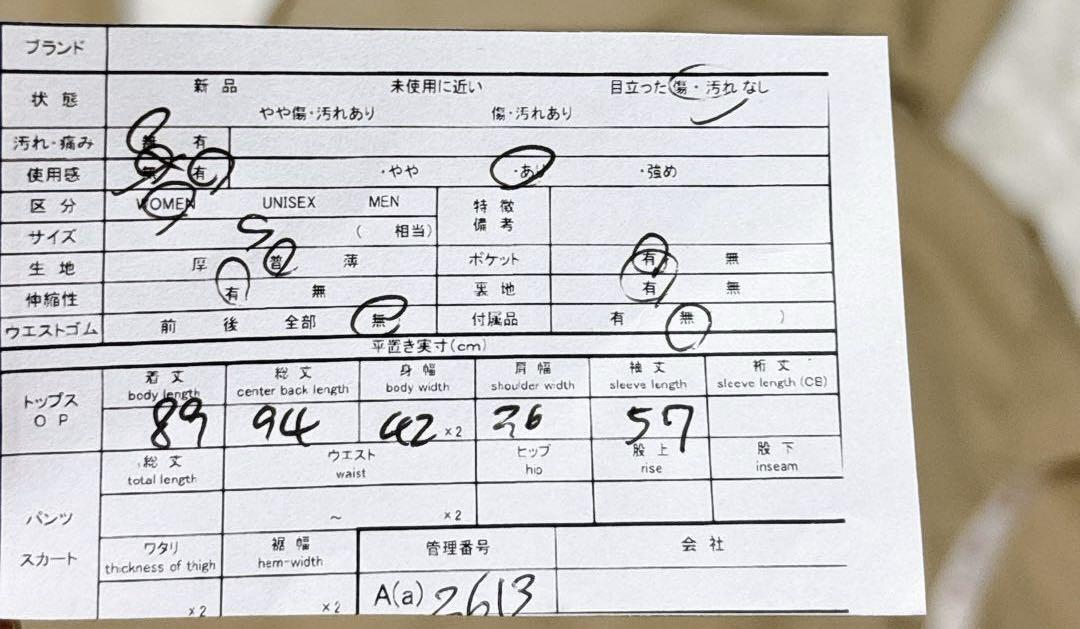 ブランド
状態 新品 未使用に近い 目立った傷・汚れなし
やや傷・汚れあり 傷・汚れあり
汚れ・痛み 無 有
使用感 無 有 ・やや ・あり ・強め
区分 WOMEN UNISEX MEN 特徴備考
サイズ S ( 相当)
生地 厚 普 薄 ポケット 有 無
伸縮性 有 無 裏地 有 無
ウエストゴム 前 後 全部 無 付属品 有 無 )
平置き実寸(cm)
トップス OP
着丈 総丈 身幅 肩幅 袖丈 裄丈
body length center back length body width shoulder width sleeve length sleeve length (CB)
89 94 42 ×2 36 57
パンツ スカート
総丈 ウエスト ヒップ 股上 股下
total length waist hip rise inseam
~ ×2
ワタリ 裾幅 管理番号 会社
thickness of thigh hem-width
×2 ×2 A(a) 2613